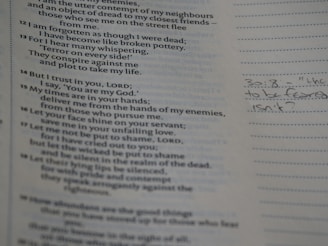 my enemies,
I am the utter contempt of my neighbours
and an object of dread to my closest friends –
those who see me on the street flee
from me.
12 I am forgotten as though I were dead;
I have become like broken pottery.
13 For I hear many whispering,
'Terror on every side!'
They conspire against me
and plot to take my life.
14 But I trust in you, LORD;
I say, 'You are my God.'
15 My times are in your hands;
deliver me from the hands of my enemies,
from those who pursue me.
16 Let your face shine on your servant;
save me in your unfailing love.
17 Let me not be put to shame, LORD,
for I have cried out to you;
but let the wicked be put to shame
and be silent in the realm of the dead.
18 Let their lying lips be silenced,
for with pride and contempt
they speak arrogantly against the
righteous.
19 How abundant are the good things
that you have stored up for those who fear
you,
that you bestow in the sight of all,
"the
to be
isn't?